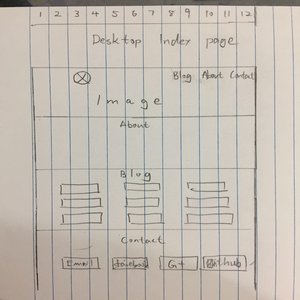 1 2 3 4 5 6 7 8 9 10 11 12
Desktop Index page
Blog About Contact
Image
About
Blog
Contact
Email facebook G+ Github